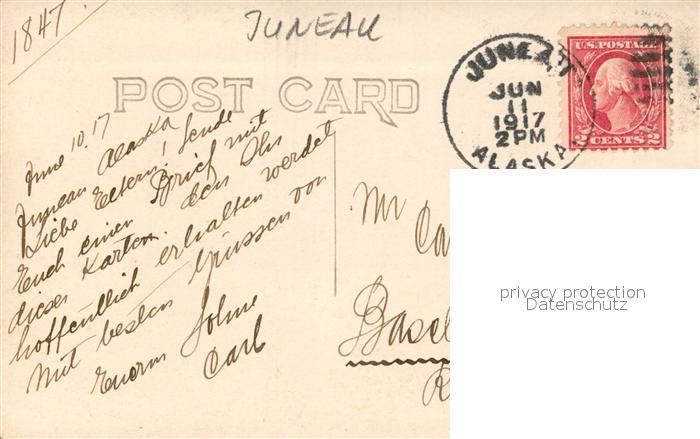 1847
JUNEAU
POST CARD
JUNEAU
JUN
11
1917
2 PM
ALASKA
U.S. POSTAGE
2 CENTS 2
June 10. 17
Juneau Alaska
Liebe Eltern! Sende
Euch einen Brief mit
dieser Karten. den Ihr
hoffentlich erhalten werdet
Mit besten Grüssen von
Eurem Sohne
Carl
Mr
Basel
privacy protection
Datenschutz